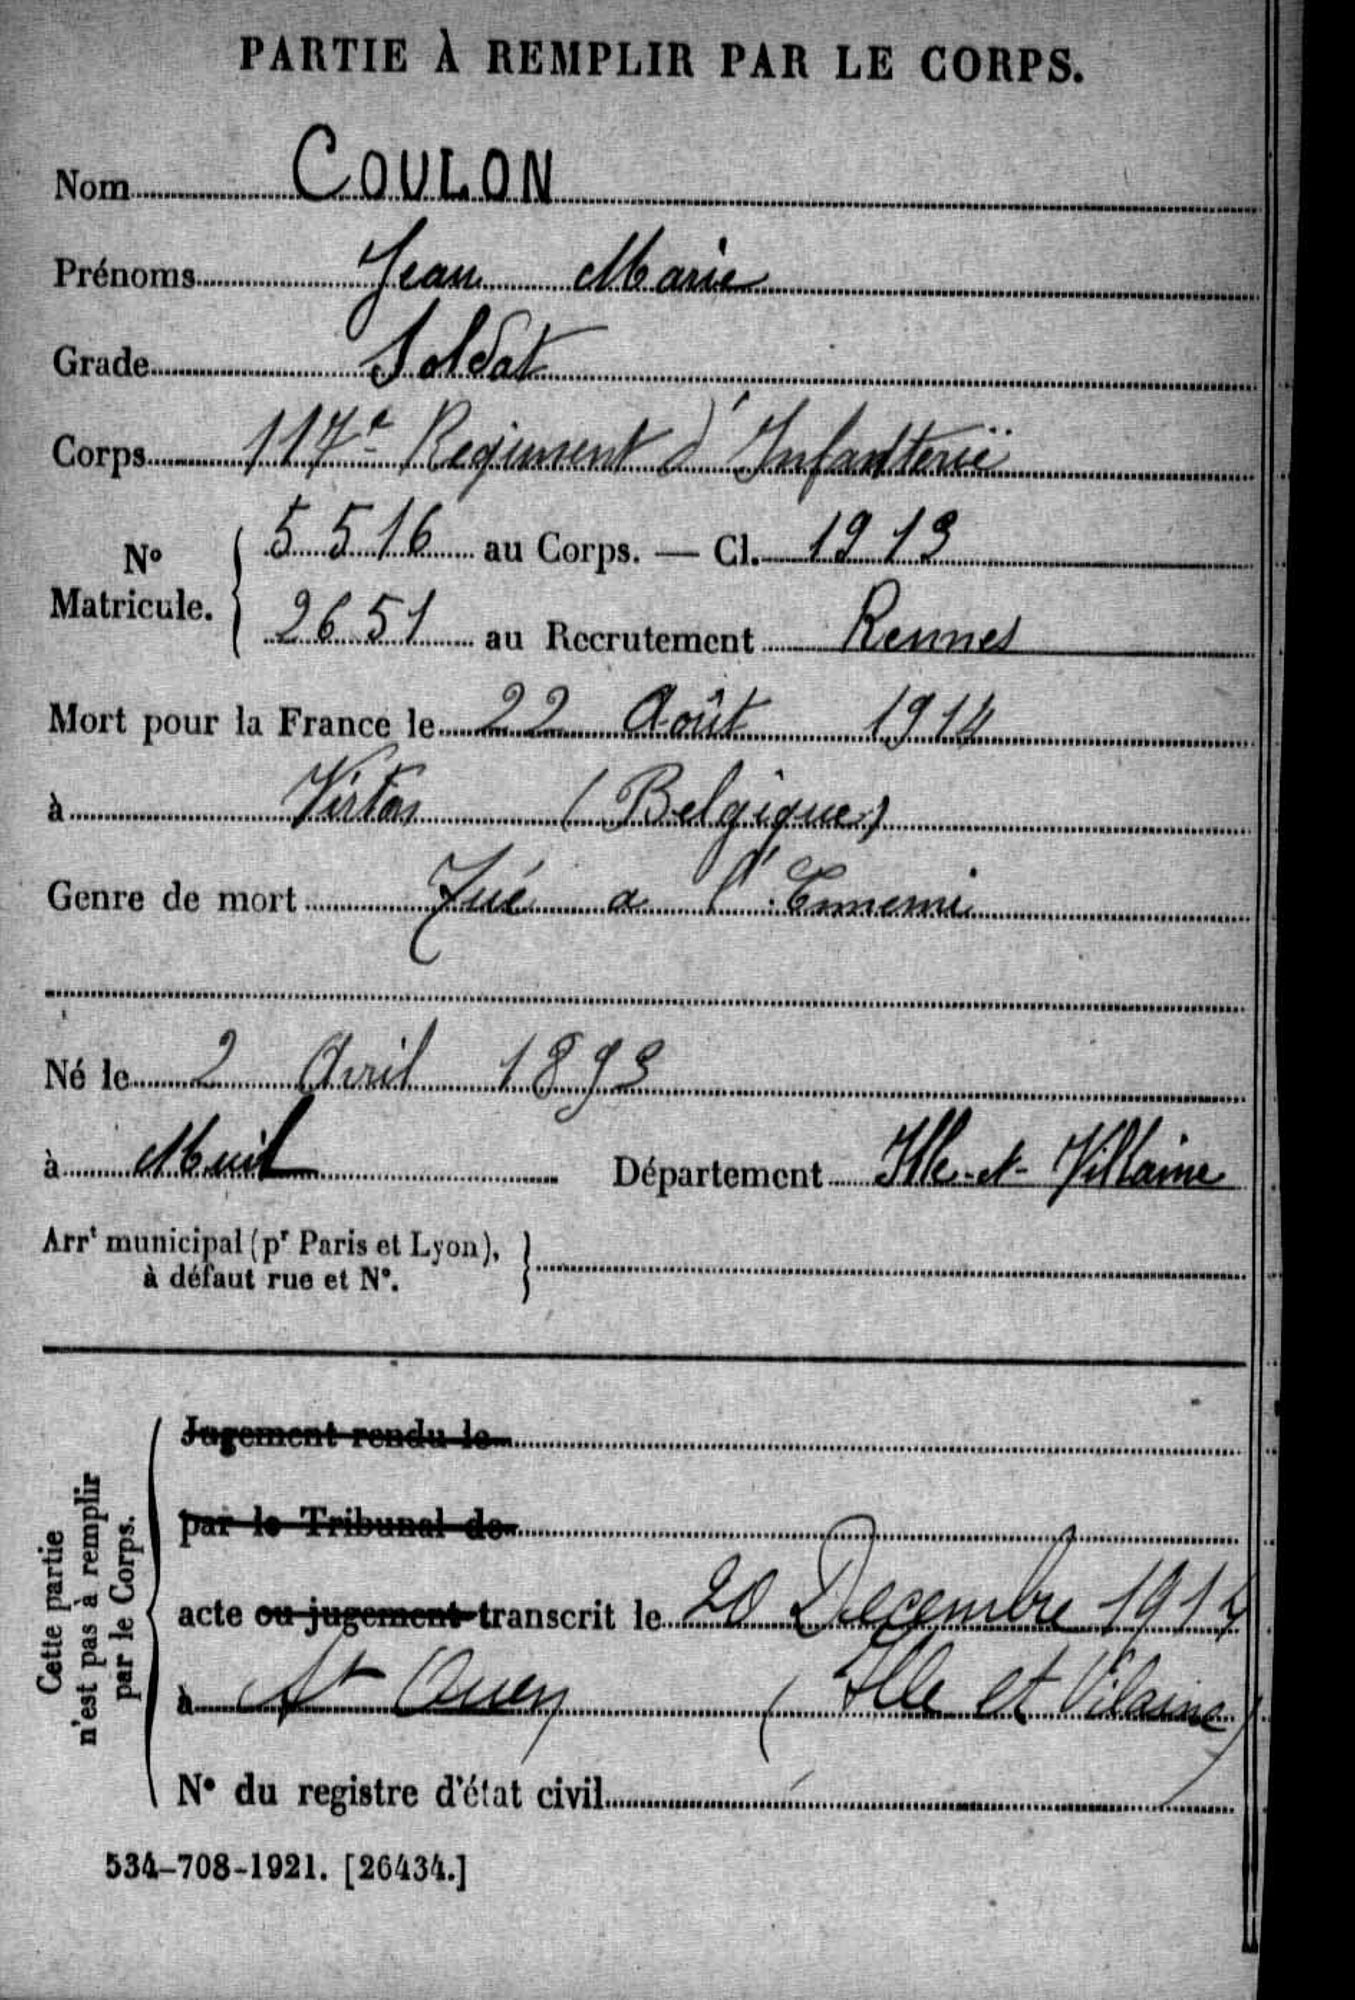 PARTIE À REMPLIR PAR LE CORPS.
Nom COULON
Prénoms Jean Marie
Grade Soldat
Corps 117e Regiment d'Infanterie
No Matricule. { 5516 au Corps. — Cl. 1913
2651 au Recrutement Rennes
Mort pour la France le 22 Août 1914
à Virton (Belgique)
Genre de mort Tué a l'Ennemi
Né le 2 Avril 1893
à Département Ille-et-Villaine
Arrt municipal (pr Paris et Lyon),
à défaut rue et N°. }
Cette partie
n'est pas à remplir
par le Corps.
Jugement rendu le
par le Tribunal de
acte ou jugement transcrit le 20 Decembre 1914
à St Ouen (Ille et Vilaine)
N° du registre d'état civil
534-708-1921. [26434.]